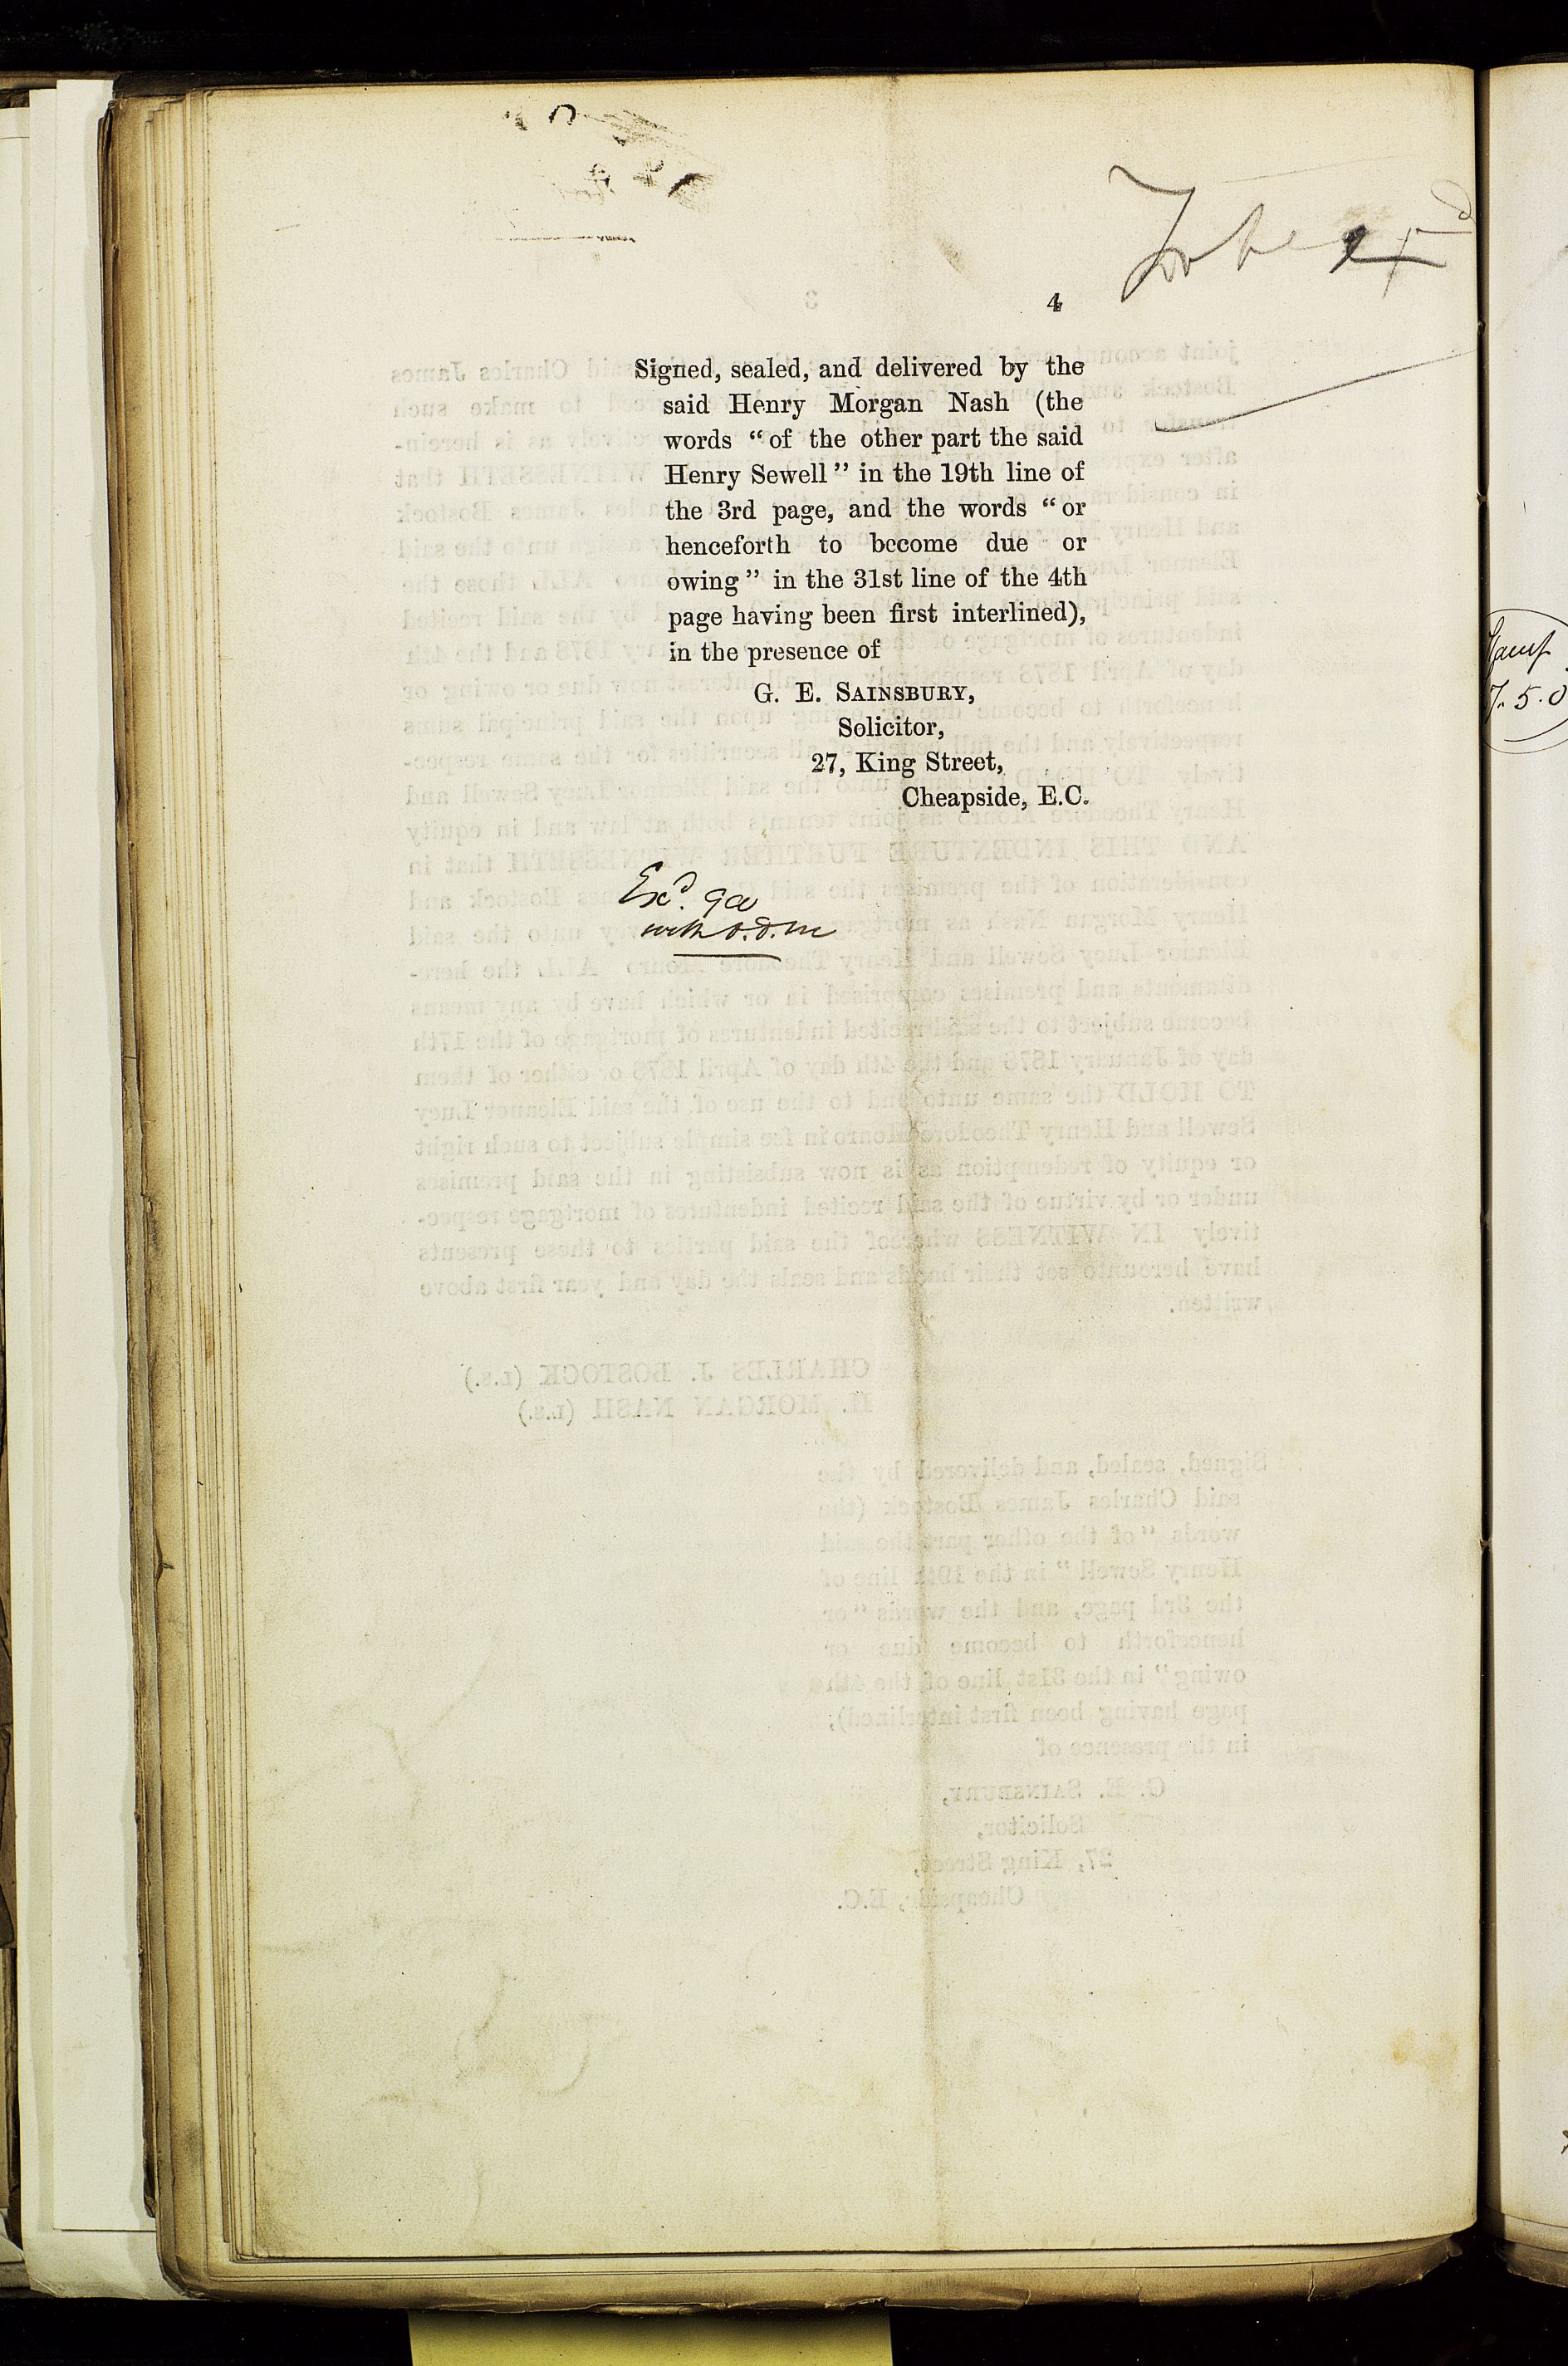 To be exd
4
Signed, sealed, and delivered by the
said Henry Morgan Nash (the
words “of the other part the said
Henry Sewell” in the 19th line of
the 3rd page, and the words “or
henceforth to become due or
owing” in the 31st line of the 4th
page having been first interlined),
in the presence of
G. E. SAINSBURY,
Solicitor,
27, King Street,
Cheapside, E.C.
Exd.
with